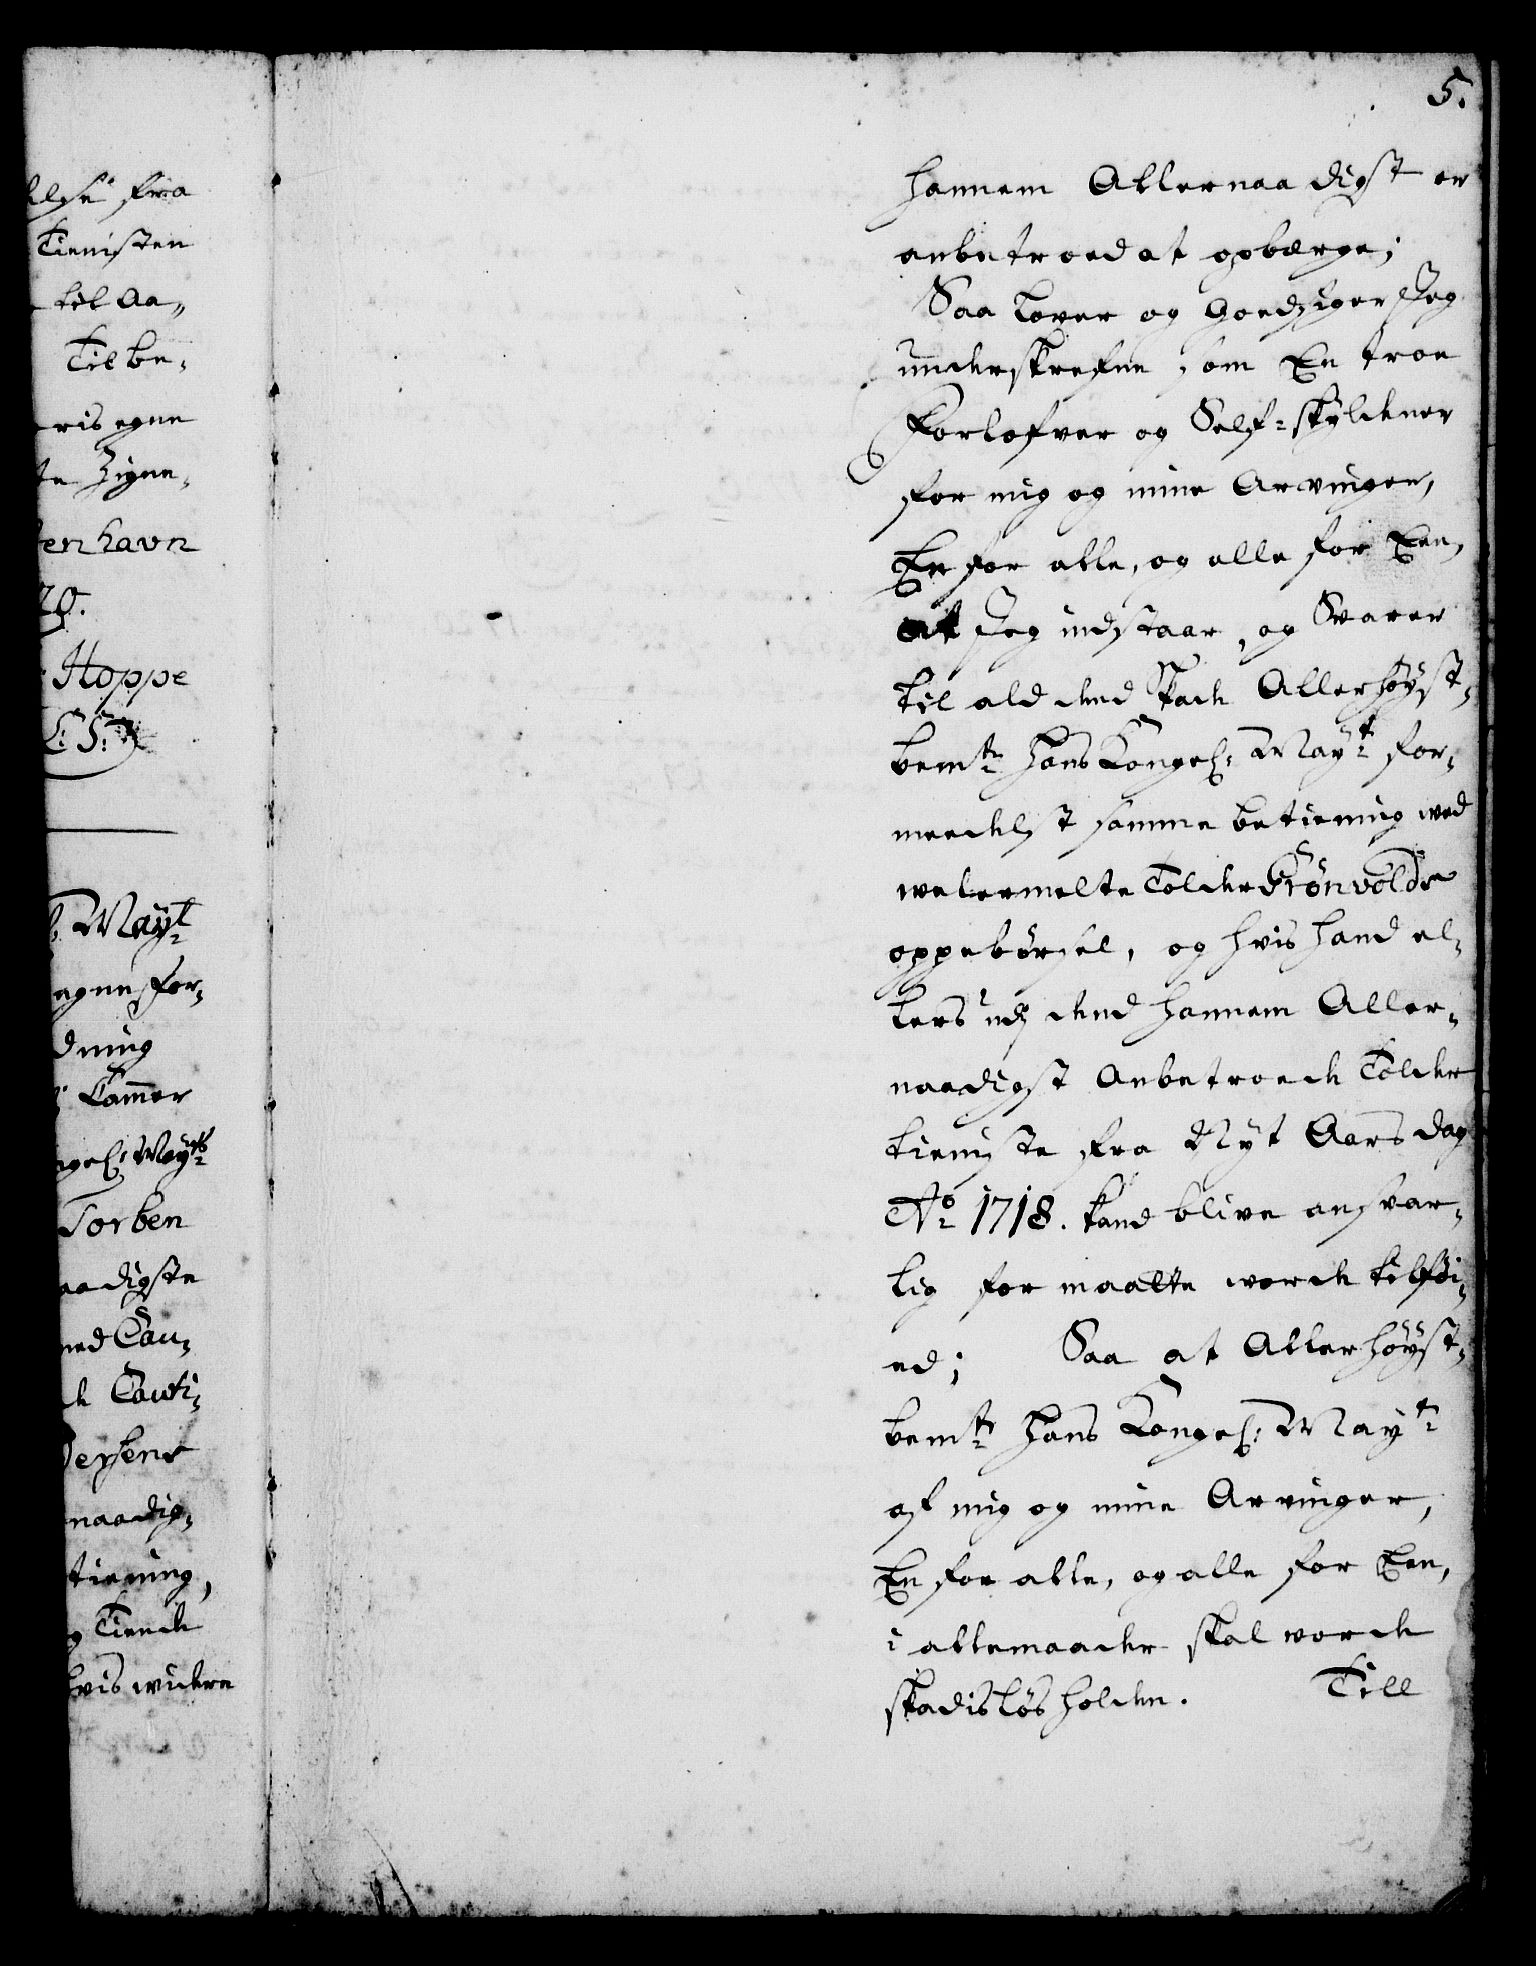 lse fra
Tienisten
til Aa„
Til be„
ris egne
te Zigne„
enhavn
29.
Hoppe
L: S:
Mayt
egne for„
dning
Cammer
ngel: Mayts
Torben
aadigste
med Cau„
de Cauti„
naadig„
tiening,
og Tiende
hvis widere
5.
hannem Allernaadigst er
anbetroed at opbærge;
Saa Lover og Goedsiger Jeg
underskrefne som En troe
Forlofver og Self-skyldener
for mig og mine Arvinger,
En for alle, og alle for Een,
at Jeg indstaar, og Svarer
til ald dend skade Allerhøyst„
bemte Hans Kongel: Mayt for„
meedelst samme betiening ved
welermelte Tolder Grönvolds
oppebørsel, og hvis hand el„
lers udj dend hannem Aller„
naadigst Anbetroede Tolder
tieniste fra Nyt Aars dag
Ao 1718. kand blive ansvar„
lig for maatte worde tilføi„
ed; Saa at Allerhøyst„
bemte Hans Kongel: Mayt
af mig og mine Arvinger,
En for alle, og alle for Een,
i allemaader skal worde
skadisløs holden. Till